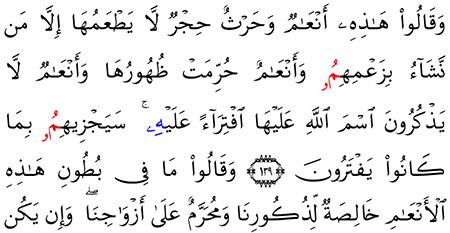 وَقَالُوا۟ هَـٰذِهِۦ أَنْعَـٰمٌ وَحَرْثٌ حِجْرٌ لَّا يَطْعَمُهَا إِلَّا مَن
نَّشَآءُ بِزَعْمِهِمُۥ وَأَنْعَـٰمٌ حُرِّمَتْ ظُهُورُهَا وَأَنْعَـٰمٌ لَّا
يَذْكُرُونَ ٱسْمَ ٱللَّهِ عَلَيْهَا ٱفْتِرَآءً عَلَيْهِۦ ۚ سَيَجْزِيهِمُۥ بِمَا
كَانُوا۟ يَفْتَرُونَ ﴿١٣٩﴾ وَقَالُوا۟ مَا فِى بُطُونِ هَـٰذِهِ
ٱلْأَنْعَـٰمِ خَالِصَةٌ لِّذُكُورِنَا وَمُحَرَّمٌ عَلَىٰٓ أَزْوَٰجِنَا ۖ وَإِن يَكُن